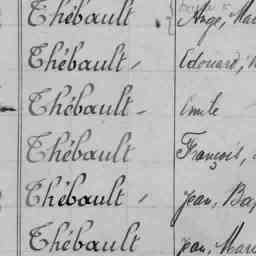 Thébault Ange, Ma
Thébault Edouard,
Thébault Emile
Thébault François,
Thébault Jean, Bap
Thébault Jean, Mari